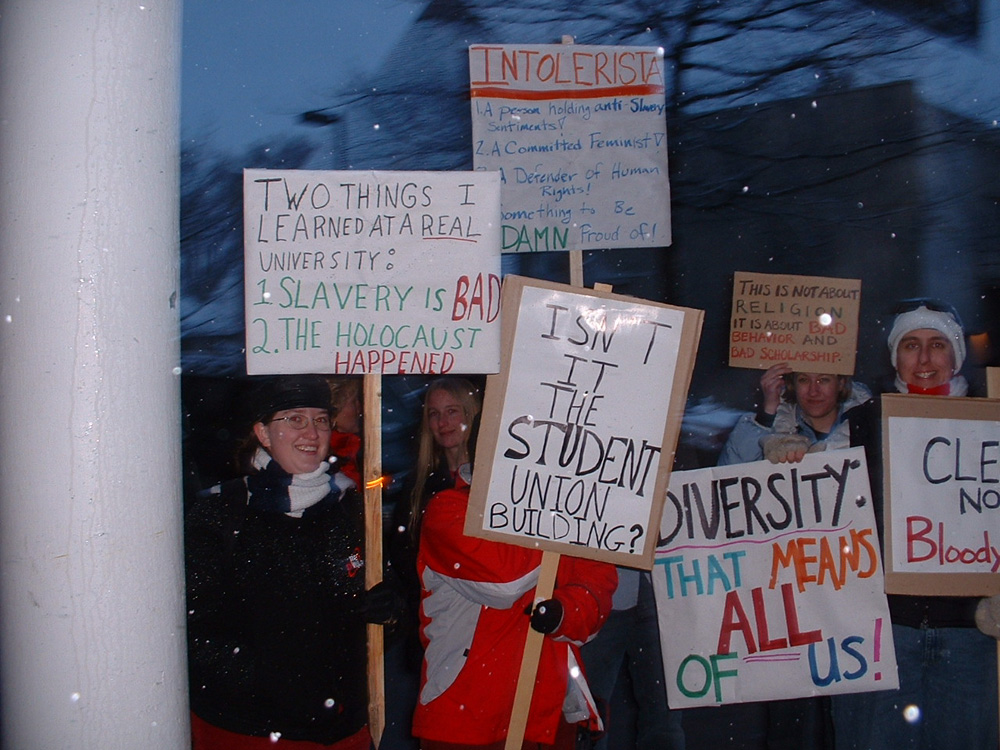 INTOLERISTA
1. A person holding anti-Slavery
Sentiments!
2. A Committed Feminist!
A Defender of Human
Rights!
Something to Be
DAMN Proud of!
TWO THINGS I
LEARNED AT A REAL
UNIVERSITY:
1 SLAVERY IS BAD
2. THE HOLOCAUST
HAPPENED
ISN'T
IT
THE
STUDENT
UNION
BUILDING?
THIS IS NOT ABOUT
RELIGION
IT IS ABOUT BAD
BEHAVIOR AND
BAD SCHOLARSHIP.
DIVERSITY:
THAT MEANS
ALL
OF US!
CLE
NO
Bloody